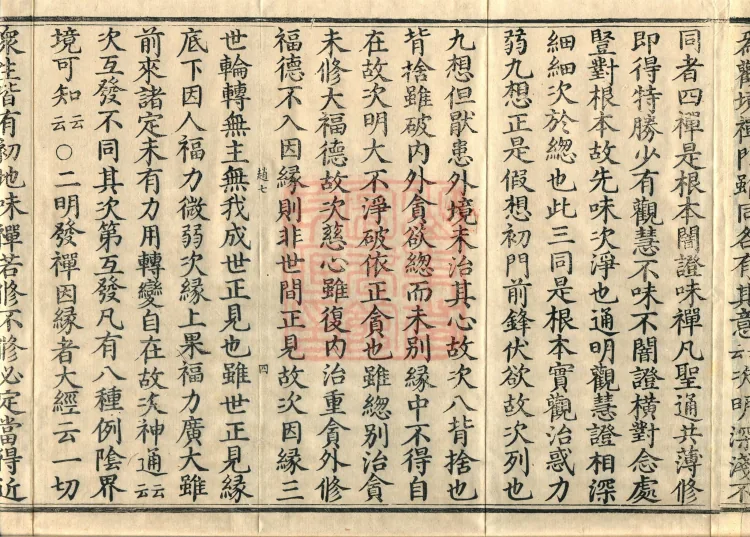 發觀境禪門雖同各有其意云次明深淺不
同者四禪是根本闇證味禪凡聖通共薄修
即得特勝少有觀慧不味不闇證橫對念處
豎對根本故先味次淨也通明觀慧證相深
細細次於總也此三同是根本實觀治惑力
弱九想正是假想初門前鋒伏欲故次列也
九想但猒患外境未治其心故次八背捨也
背捨雖破內外貪欲總而未別緣中不得自
在故次明大不淨破依正貪也雖總別治貪
未修大福德故次慈心雖復內治重貪外修
福德不入因緣則非世間正見故次因緣三
趙七
四
世輪轉無主無我成世正見也雖世正見緣
底下因人福力微弱次緣上果福力廣大雖
前來諸定未有力用轉變自在故次神通云云
次互發不同其次第互發凡有八種例陰界
境可知云云〇二明發禪因緣者大經云一切
眾生皆有初地味禪若修不修必定當得近